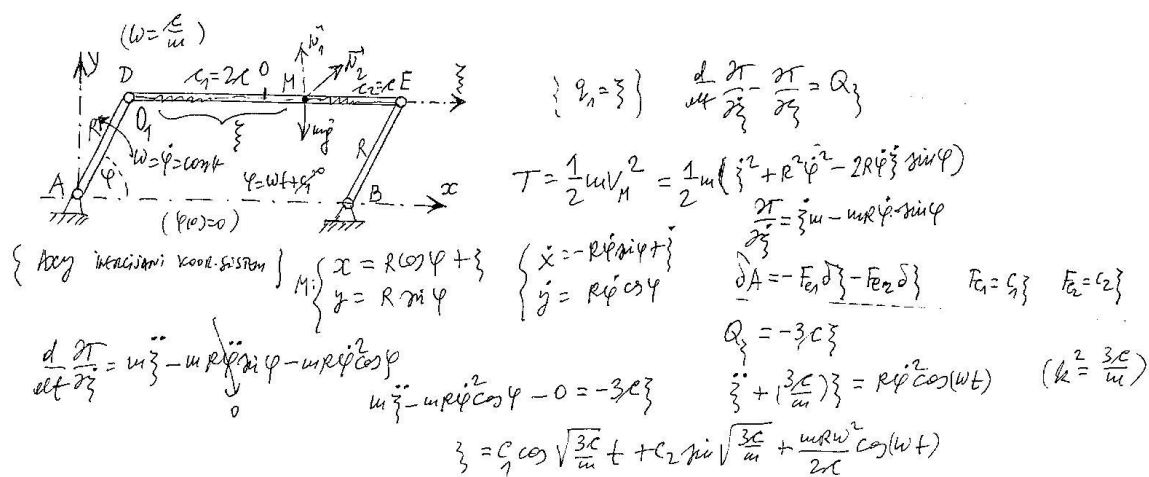 (ω = c/m)
y
D
c₁=2c
O
M
N⃗₁
N⃗₂
c₂=c
E
ξ
O₁
R
ξ
mg⃗
ω=φ̇=const
R
φ
φ=ωt+c₁⁰
A
B
x
(φ(0)=0)
{ q₁=ξ } d/dt ∂T/∂ξ̇ − ∂T/∂ξ = Q_ξ
T = 1/2 mV_M² = 1/2 m(ξ̇² + R²φ̇² − 2Rφ̇ξ̇ sinφ)
∂T/∂ξ̇ = ξ̇m − mRφ̇·sinφ
{ Axy INERCIJANI KOOR. SISTEM } M: { x = Rcosφ + ξ { ẋ = −Rφ̇sinφ + ξ̇
y = R sinφ ẏ = Rφ̇cosφ
δA = −F_c1 δξ − F_c2 δξ F_c1 = c₁ξ F_c2 = c₂ξ
Q_ξ = −3cξ
d/dt ∂T/∂ξ̇ = mξ̈ − mRφ̈sinφ − mRφ̇²cosφ
0
mξ̈ − mRφ̇²cosφ − 0 = −3cξ
ξ̈ + (3c/m)ξ = Rφ̇²cos(ωt) (k² = 3c/m)
ξ = C₁cos√(3c/m) t + C₂ sin√(3c/m) + mRω²/2c cos(ωt)